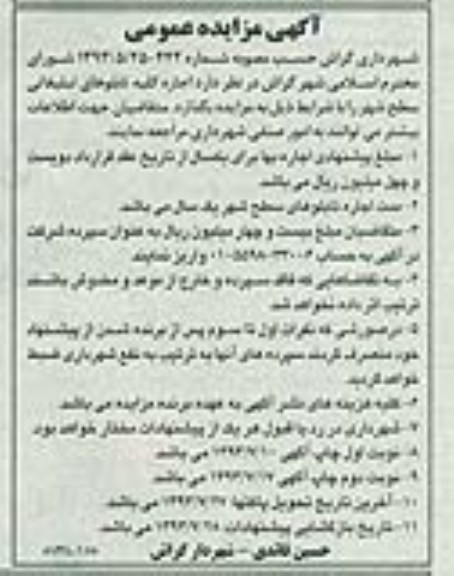 آگهی مزایده عمومی
شهرداری گراش حسب مصوبه شماره ۴۳۲-۱۳۹۳/۵/۲۵ شورای
محترم اسلامی شهر گراش در نظر دارد اجاره کلیه تابلوهای تبلیغاتی
سطح شهر را با شرایط ذیل به مزایده بگذارد. متقاضیان جهت اطلاعات
بیشتر می توانند به امور صنفی شهرداری مراجعه نمایند.
۱- مبلغ پیشنهادی اجاره بها برای یکسال از تاریخ عقد قرارداد دویست
و چهل میلیون ریال می باشد.
۲- مدت اجاره تابلوهای سطح شهر یک سال می باشد.
۳- متقاضیان مبلغ بیست و چهار میلیون ریال به عنوان سپرده شرکت
در آگهی به حساب واریز نمایند.
۴- به تقاضاهایی که فاقد سپرده و خارج از موعد و مخدوش باشند
ترتیب اثر داده نخواهد شد.
۵- درصورتی که نفرات اول تا سوم پس از برنده شدن از پیشنهاد
خود منصرف گردند سپرده های آنها به ترتیب به نفع شهرداری ضبط
خواهد گردید.
۶- کلیه هزینه های نشر آگهی به عهده برنده مزایده می باشد.
۷- شهرداری در رد یا قبول هر یک از پیشنهادات مختار خواهد بود.
۸- نوبت اول چاپ آگهی ۱۳۹۳/۷/۱۰ می باشد.
۹- نوبت دوم چاپ آگهی ۱۳۹۳/۷/۱۷ می باشد.
۱۰- آخرین تاریخ تحویل پاکتها ۱۳۹۳/۷/۲۷ می باشد.
۱۱- تاریخ بازگشایی پیشنهادات ۱۳۹۳/۷/۲۸ می باشد.
حسین قائدی - شهردار گراش